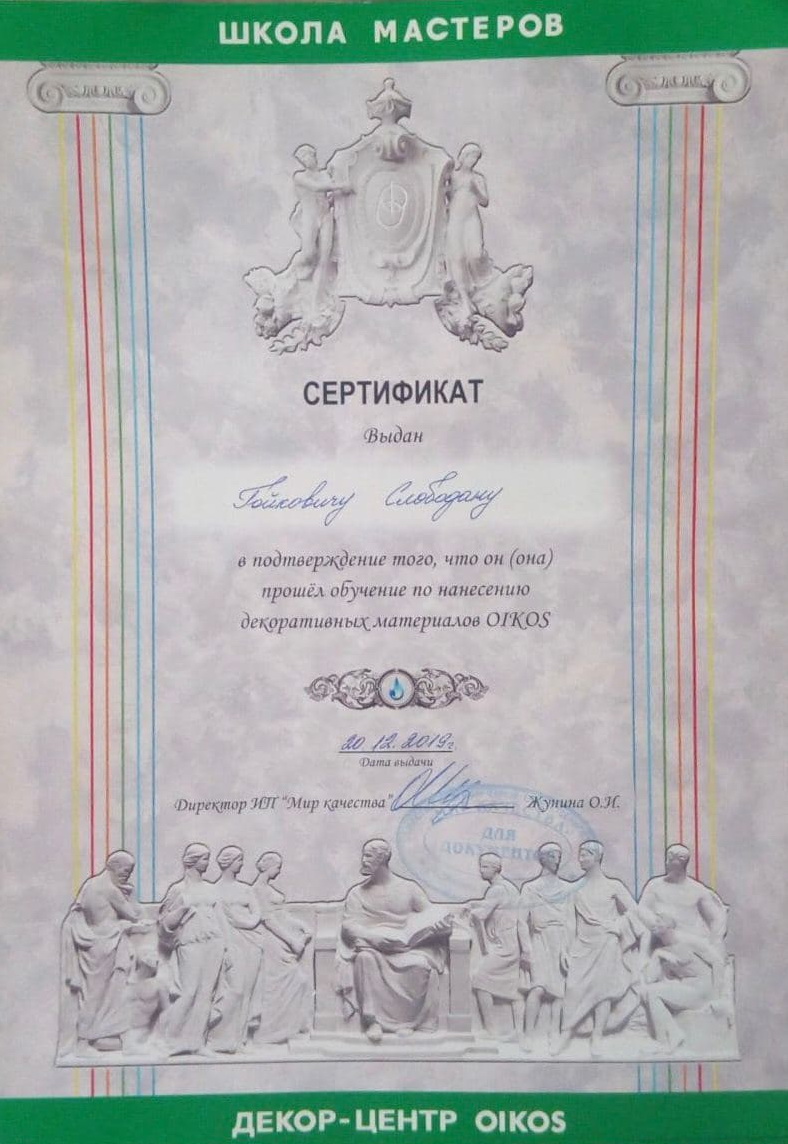 ШКОЛА МАСТЕРОВ
СЕРТИФИКАТ
Выдан
Гойковичу Слободану
в подтверждение того, что он (она)
прошёл обучение по нанесению
декоративных материалов OIKOS
20.12.2019г.
Дата выдачи
Директор ИП "Мир качества" Жунина О.И.
ДЛЯ
ДОКУМЕНТОВ
ДЕКОР-ЦЕНТР OIKOS